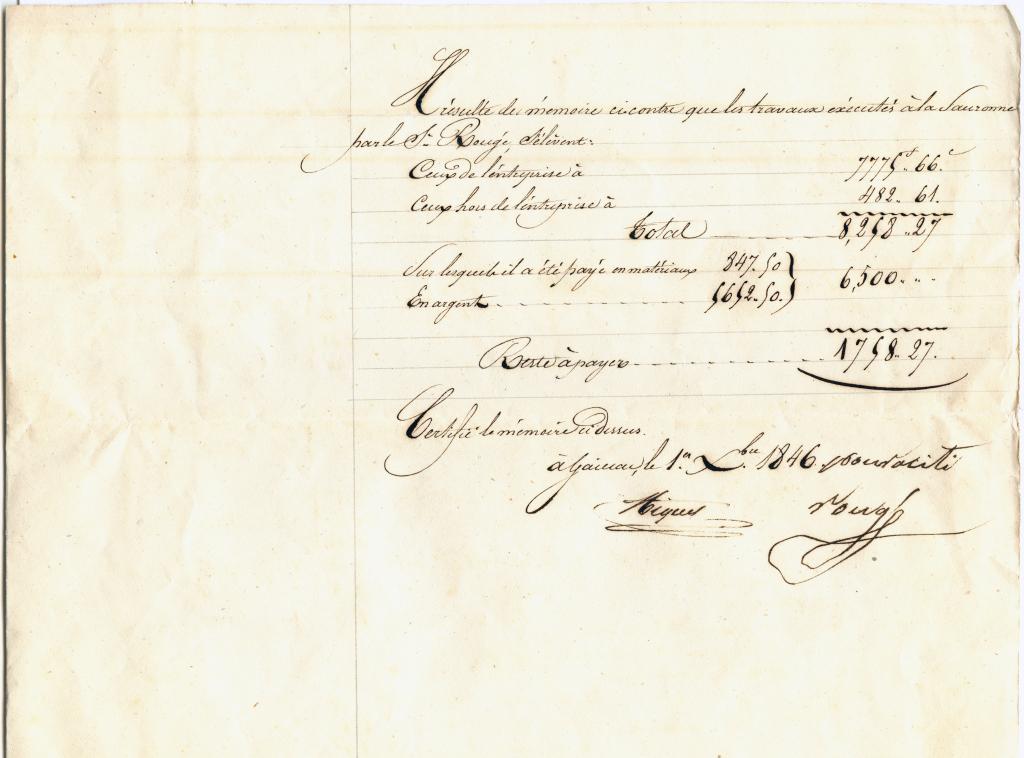 Il résulte du mémoire ci contre que les travaux exécutés à la Sauronne
par le Sr. Rougé, s'élèvent:
Ceux de l'entreprise à 7775f 66c
Ceux hors de l'entreprise à 482. 61.
Total 8,258. 27
Sur lesquels il a été payé en matériaux 847. 50
6,500. ..
En argent 5652. 50.
Reste à payer 1758. 27.
Certifié le mémoire ci dessus.
le 1er Xbre 1846. pour
Rougé